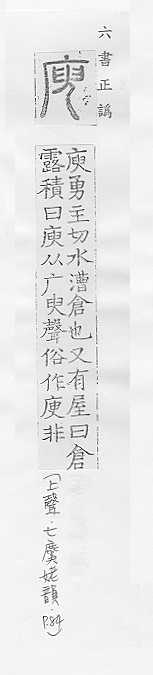 六書正譌
庾
庾勇主切水漕倉也又有屋曰倉
露積曰庾从广臾聲俗作庾非
(上聲・七麌姥韻,P.84)